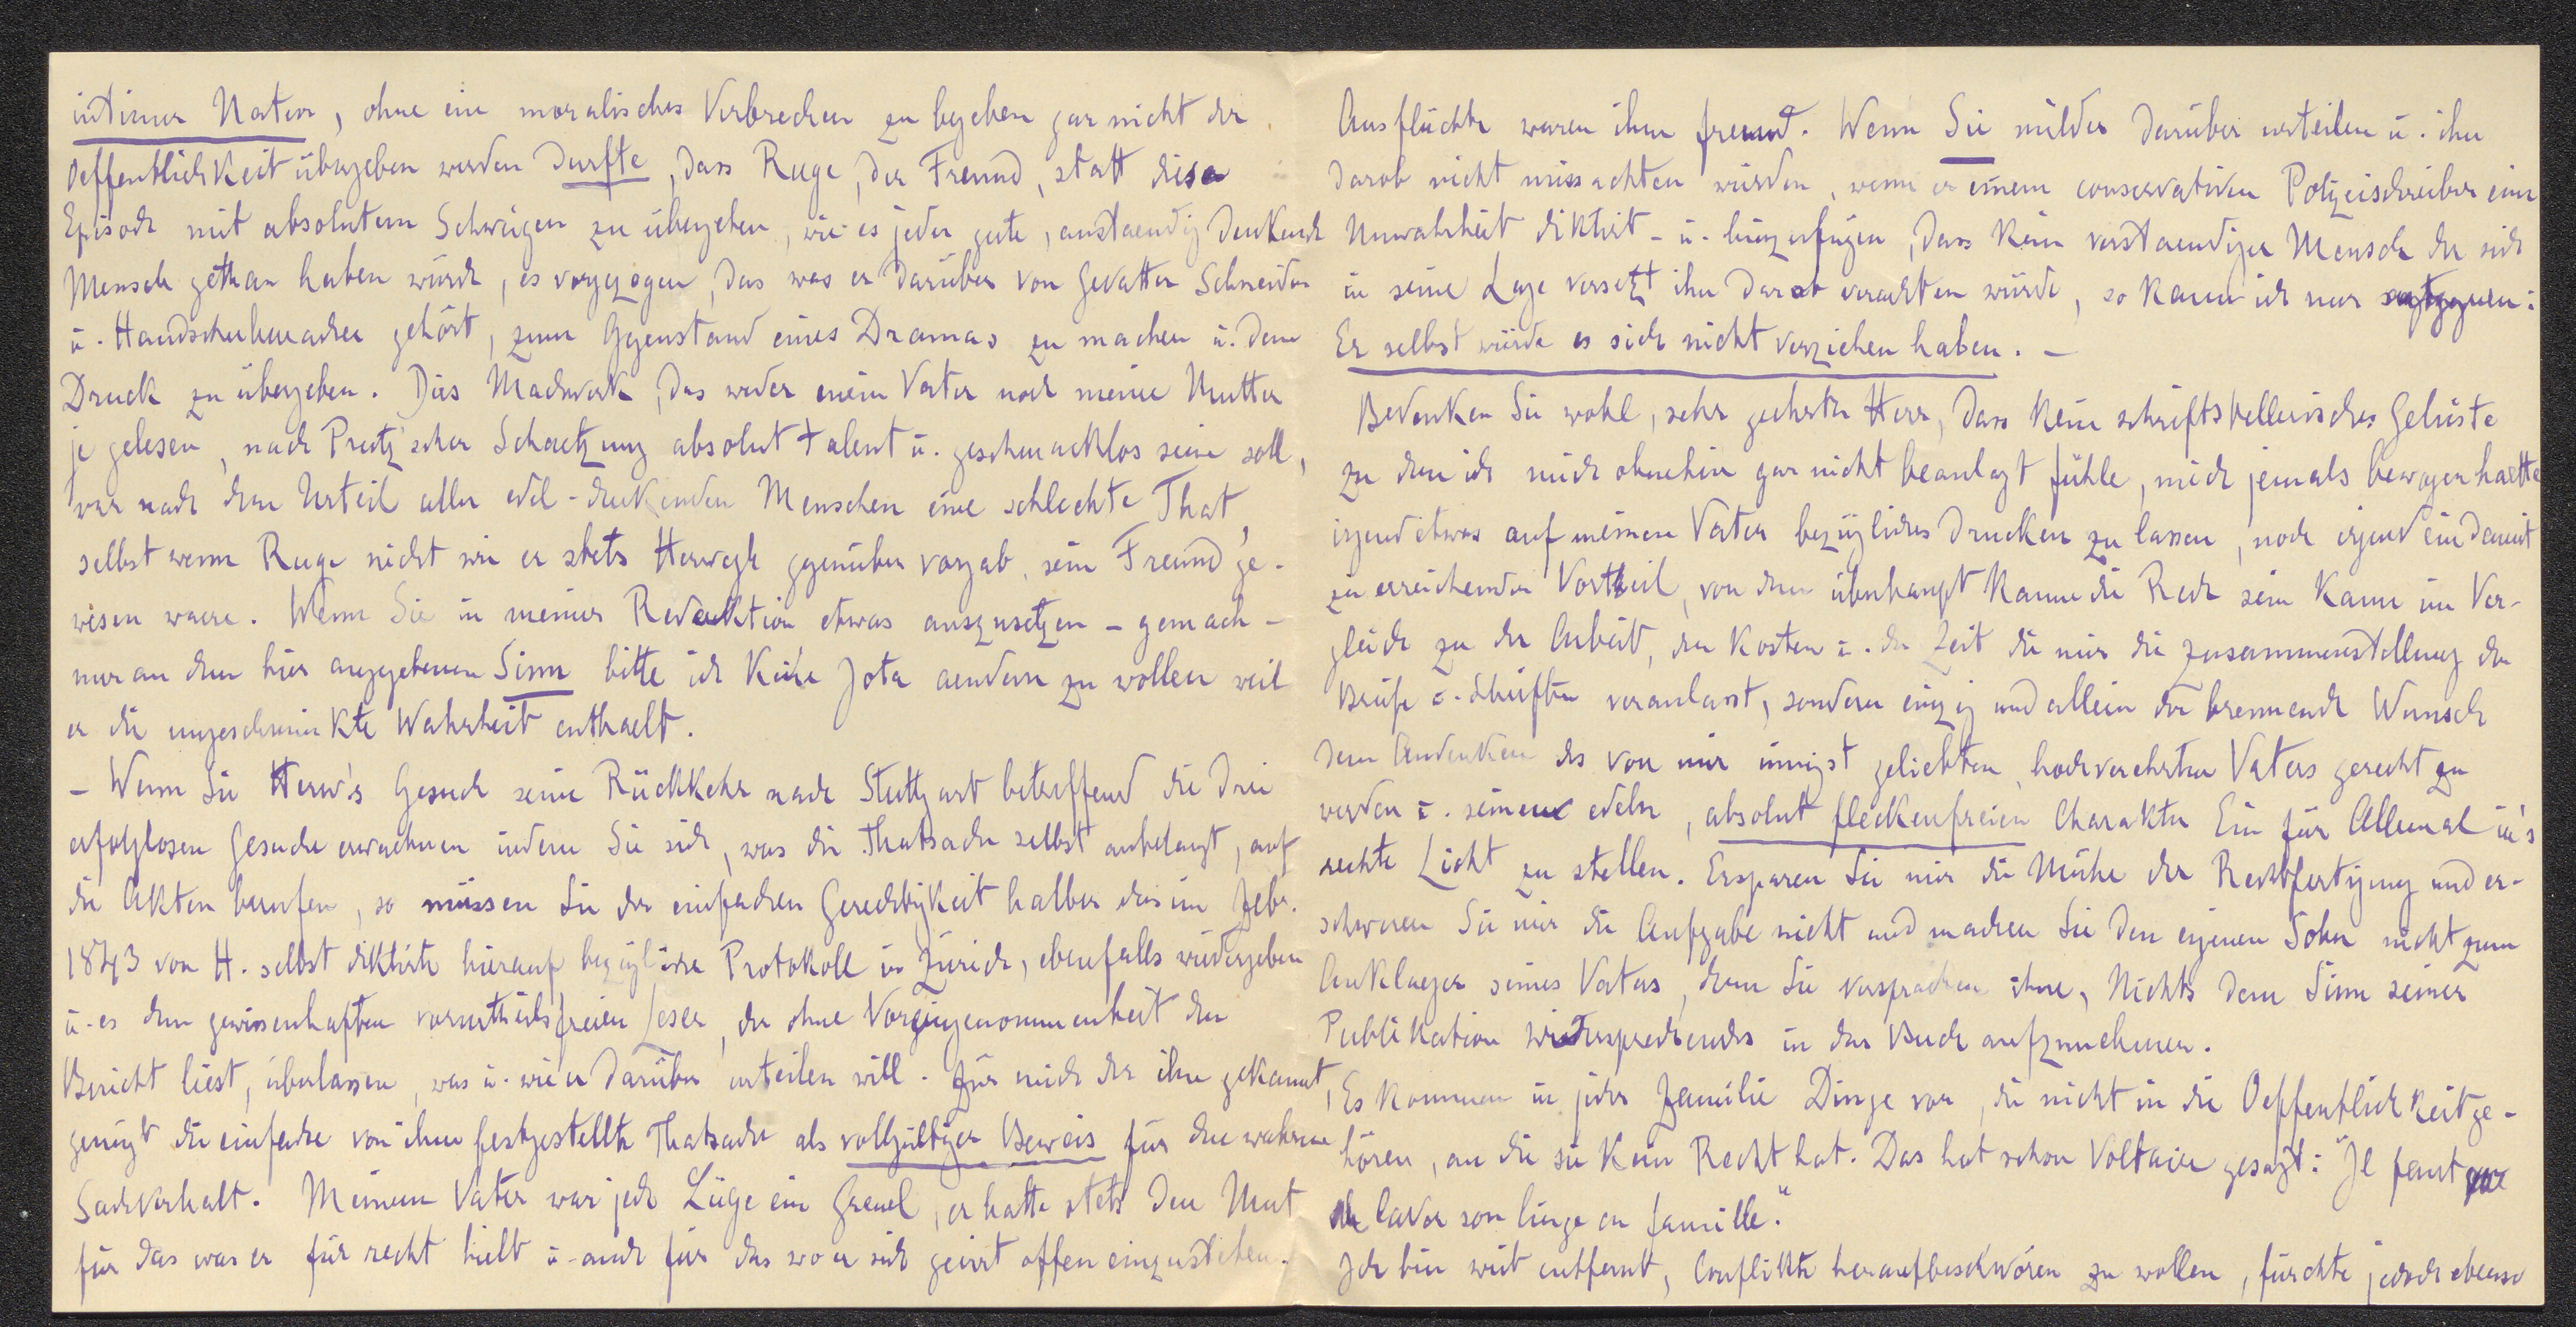 intimer Natur, ohne ein moralisches Verbrechen zu begehen gar nicht der
Oeffentlichkeit übergeben werden durfte, dass Ruge, der Freund, statt diese
Episode mit absolutem Schweigen zu übergehen, wie es jeder gute, anstaendig denkende
Mensch gethan haben würde, es vorgezogen, das was er darüber von Gevatter Schneider
u. Handschuhmacher gehört, zum Gegenstand eines Dramas zu machen u. dem
Druck zu übergeben. Dies Machwerk, das weder mein Vater noch meine Mutter
je gelesen, nach Prutz'scher Schaetzung absolut talent u. geschmacklos sein soll,
war nach dem Urteil aller edel-denkenden Menschen eine schlechte That,
selbst wenn Ruge nicht wie er stets Herwegh gegenüber vorgab, sein Freund ge-
wesen waere. Wenn Sie in meiner Redaktion etwas auszusetzen - gemach -
nur an dem hier angegebenen Sinn bitte ich kein Jota aendern zu wollen weil
er die ungeschminkte Wahrheit enthaelt.
- Wenn Sie Herw's Gesuch seine Rückkehr nach Stuttgart betreffend die drei
erfolglosen Gesuche erwaehnen indem Sie sich, was die Thatsache selbst anbelangt, auf
die Akten berufen, so müssen Sie der einfachen Gerechtigkeit halber das im Febr.
1843 von H. selbst diktirte hierauf bezügliche Protokoll in Zürich, ebenfalls wiedergeben
u. es dem gewissenhaften vorurtheilsfreien Leser, der ohne Voreingenommenheit den
Bericht liest, überlassen, was u. wie er darüber urteilen will. Für mich der ihn gekannt,
genügt die einfache von ihm festgestellte Thatsache als vollgültiger Beweis für den wahren
Sachverhalt. Meinem Vater war jede Lüge ein Greuel, er hatte stets den Mut
für das was er für recht hielt u. auch für das wo er sich geirrt offen einzustehen.
Ausflüchte waren ihm fremd. Wenn Sie milder darüber urteilen u. ihn
darob nicht missachten würden, wenn er einem conservativen Polizeischreiber eine
Unwahrheit diktirt - u. hinzufügen, dass kein verstaendiger Mensch der sich
in seine Lage versetzt ihn darob verachten würde, so kann ich nur entgegnen:
Er selbst würde es sich nicht verziehen haben. -
Bedenken Sie wohl, sehr geehrter Herr, dass kein schriftstellerisches Gelüste
zu dem ich mich ohnehin gar nicht beanlagt fühle, mich jemals bewogen haette
irgend etwas auf meinen Vater bezügliches drucken zu lassen, noch irgend ein damit
zu erreichender Vortheil, von dem überhaupt kaum die Rede sein kann im Ver-
gleich zu der Arbeit, den Kosten u. der Zeit die mir die Zusammenstellung der
Briefe u. Schriften veranlasst, sondern einzig und allein der brennende Wunsch
dem Andenken des von mir innigst geliebten, hochverehrten Vaters gerecht zu
werden u. seinen edeln, absolut fleckenfreien Charakter Ein für Allemal in's
rechte Licht zu stellen. Ersparen Sie mir die Mühe der Rechtfertigung und er-
schweren Sie mir die Aufgabe nicht und machen Sie den eigenen Sohn nicht zum
Anklaeger seines Vaters, denn Sie versprachen ihm, Nichts dem Sinn seiner
Publikation widersprechendes in das Buch aufzunehmen.
Es kommen in jeder Familie Dinge vor, die nicht in die Oeffentlichkeit ge-
hören, an die sie kein Recht hat. Das hat schon Voltaire gesagt: "Il faut
laver son linge en famille."
Ich bin weit entfernt, Conflikte heraufbeschwören zu wollen, fürchte jedoch ebenso